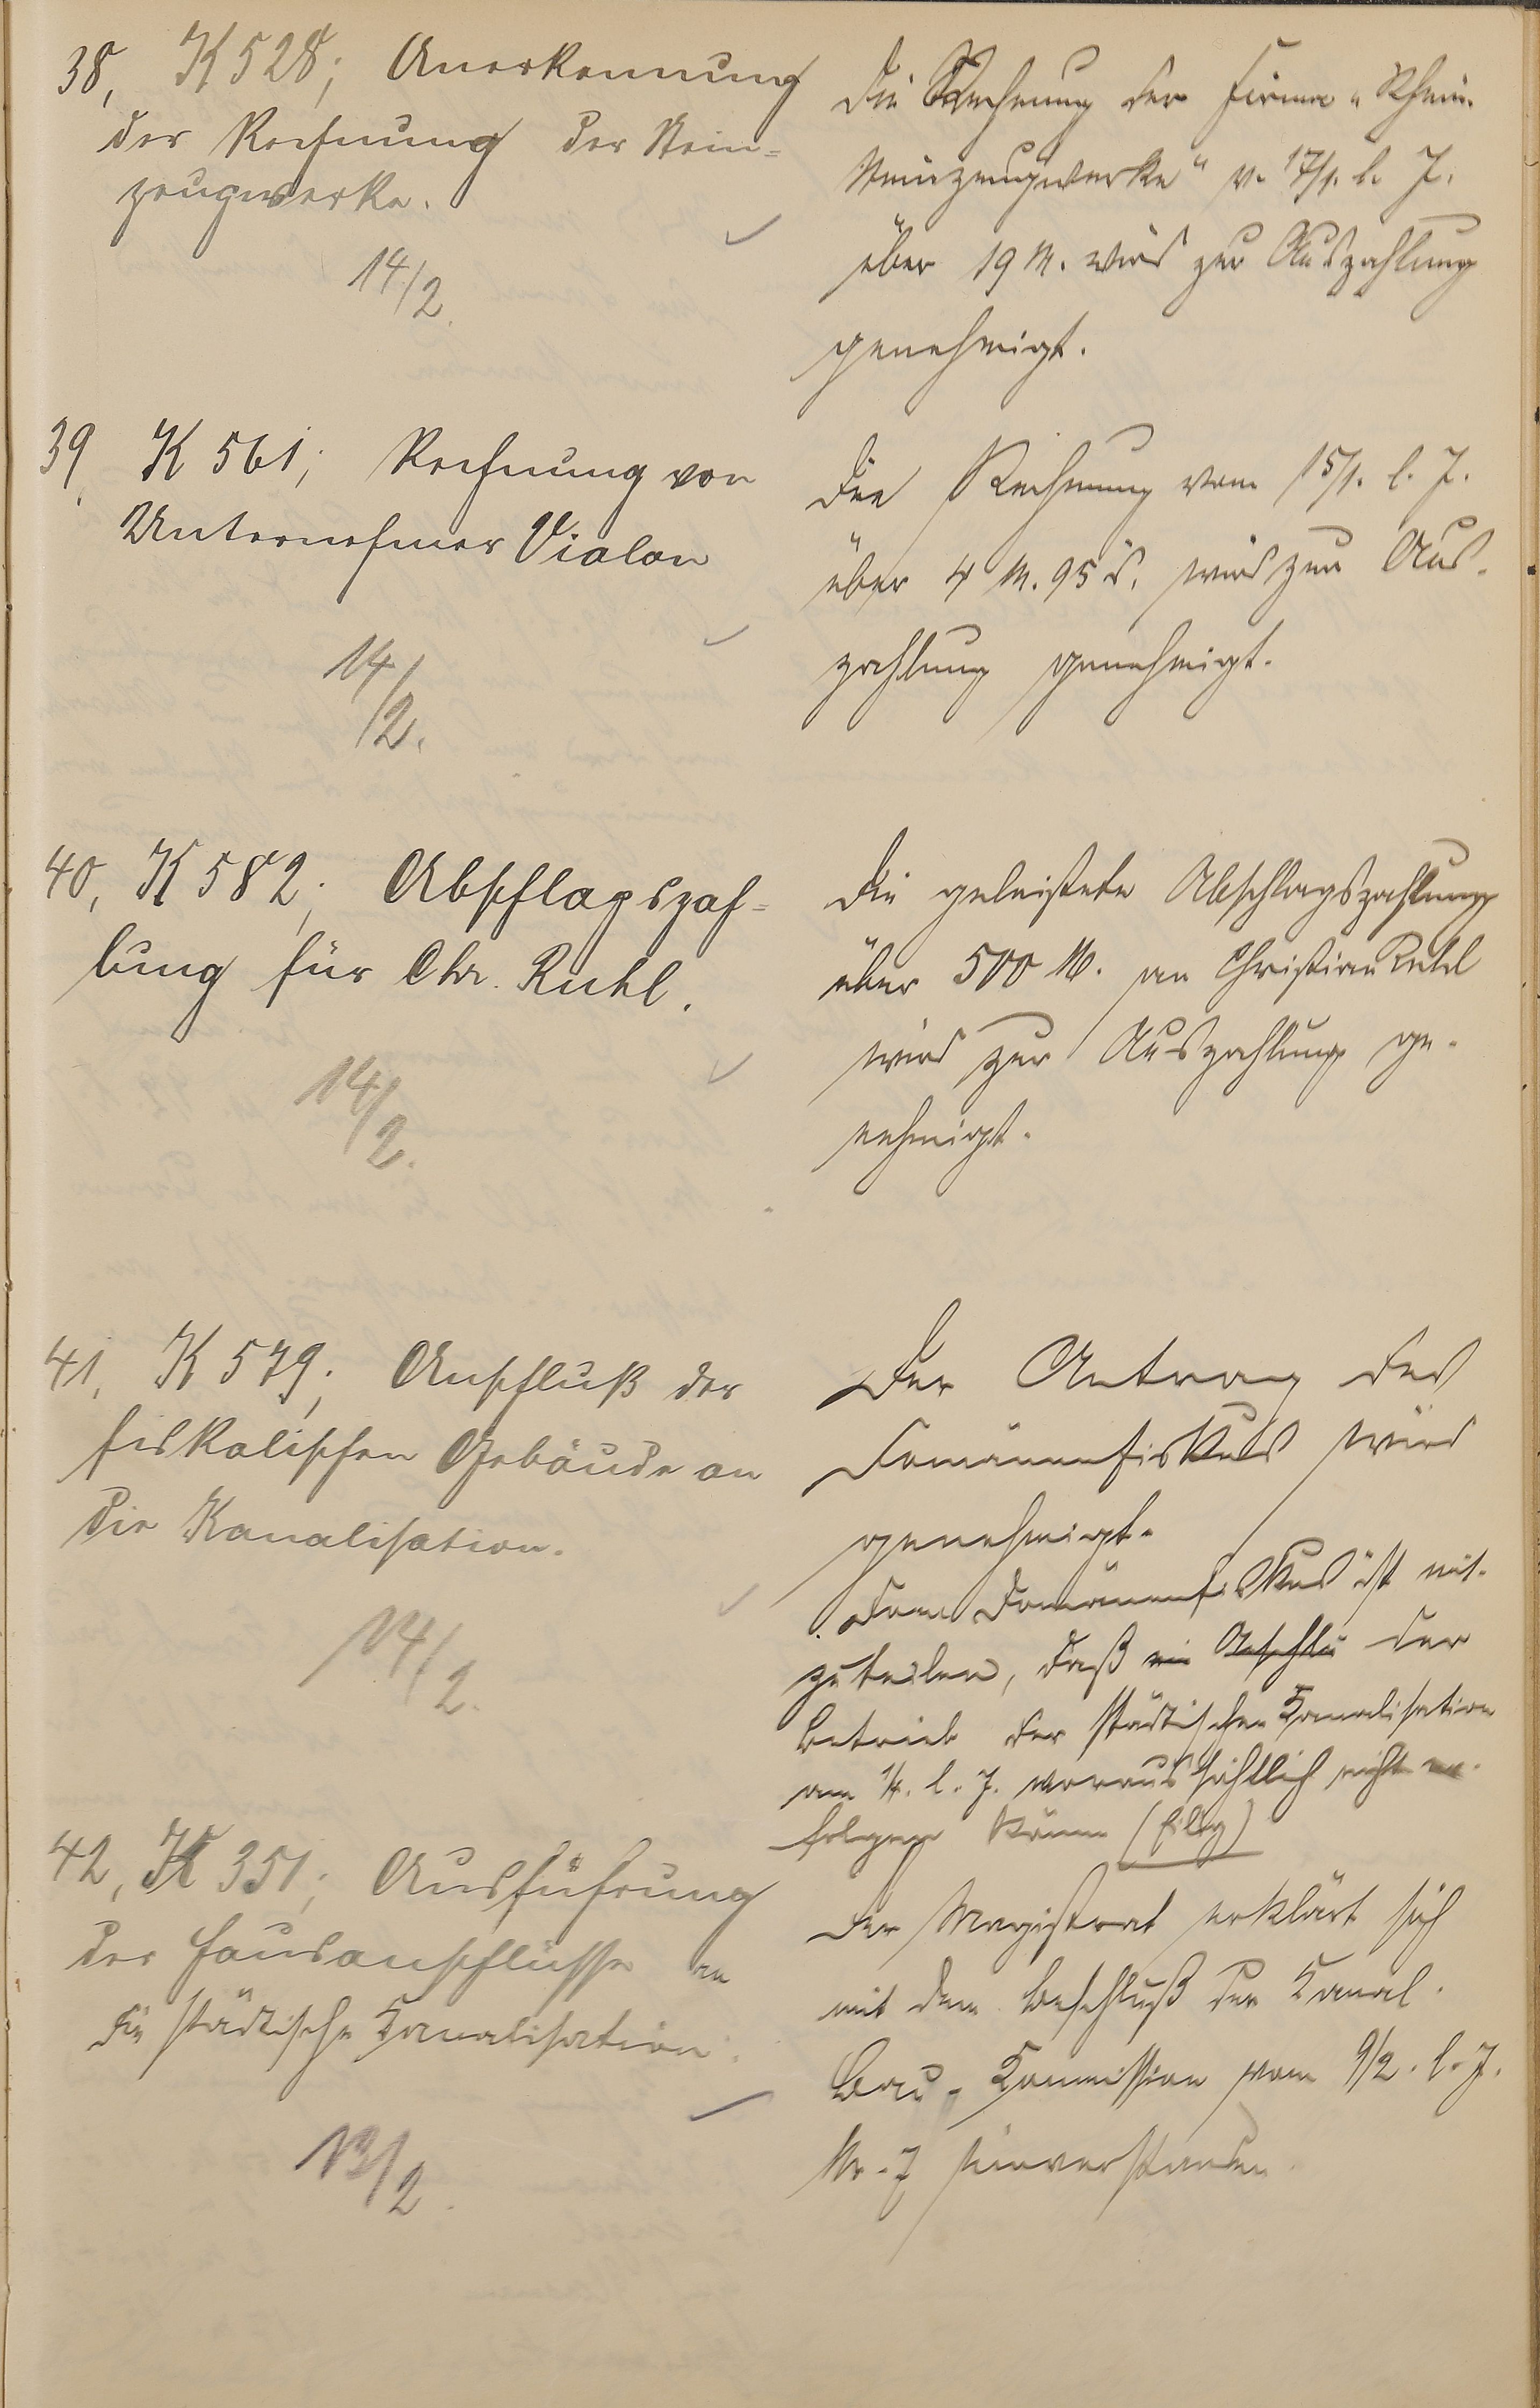 38, K 528; Anerkennung
der Rechnung der Stein=
zeugwerke.
14/2.
Die Rechnung der Firma „Rhein.
Steinzeugwerke" v. 17/1. l. J.
über 19 M. wird zur Auszahlung
genehmigt.
39, K 561; Rechnung von
Unternehmer Vialon
14/2.
Die Rechnung vom 15/1. l. J.
über 4 M. 95 d. wird zur Aus-
zahlung genehmigt.
40, K 582; Abschlagszah=
lung für Chr. Ruhl.
14/2.
Die geleistete Abschlagszahlung
über 500 M. an Christian Ruhl
wird zur Auszahlung ge-
nehmigt.
41, K 579; Anschluß der
fiskalischen Gebäude an
die Kanalisation.
14/2.
Der Antrag des
Domänenfiskus wird
genehmigt.
Dem Domänenfiskus ist mit-
zuteilen, daß ein Anschlu der
Betrieb der städtischen Kanalisation
am 1/4. l. J. voraussichtlich nicht er-
folgen könne (Eilig)
42, K 351; Ausführung
der Hausanschlüsse an
die städtische Kanalisation.
13/2.
Der Magistrat erklärt sich
mit dem Beschluß der Kanal-
Bau-Kommission vom 9/2. l. J.
Nr. 7 einverstanden.